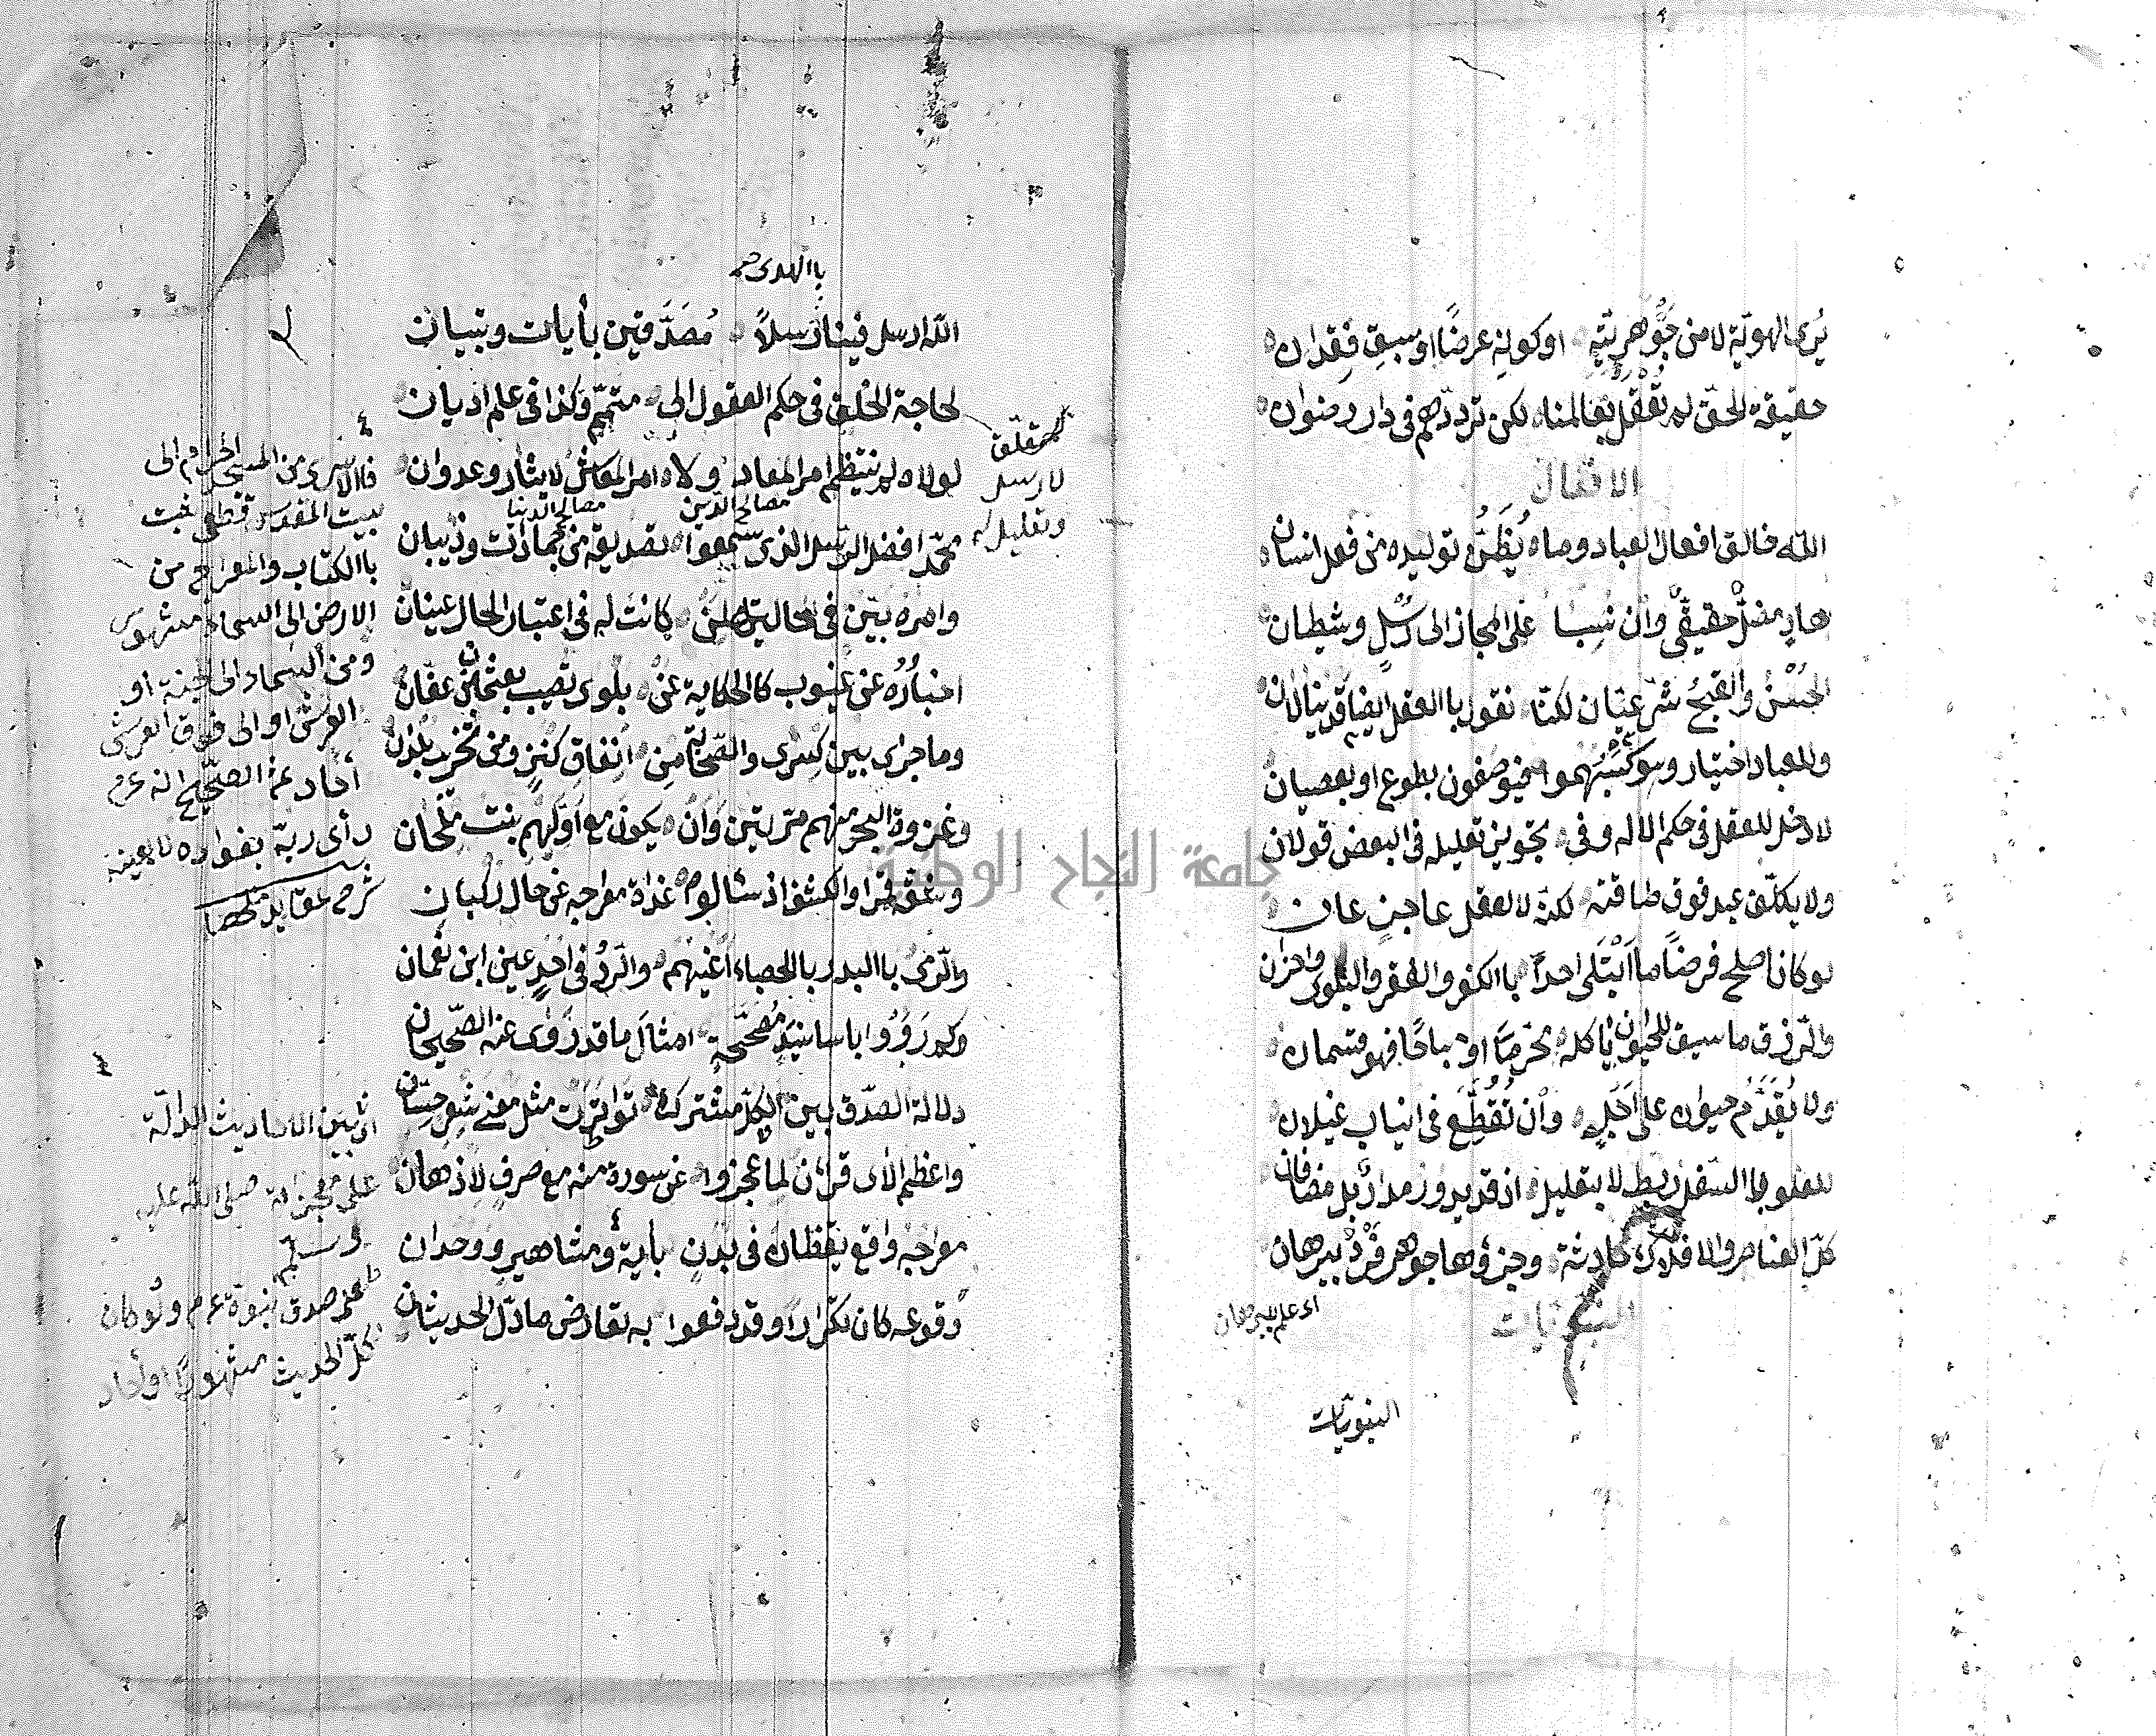 يُرى الهويّة لا من جَوهريّته او كونه عرضًا او سبق فقدان
حقيقة الحق لم تُعقل بعالمنا لكن ترددهم في دار رضوان
الافعال
الله خالق افعال العباد وما يُظَنُّ توليده من فعل انسان
هادٍ مضلّ حقيقيّ وان نُسِبا على المجاز الى رُسْلٍ وشيطان
الحُسْن والقبح شرعيّان لكنّا نقول بالعقل ايضا قد ينالان
وللعباد اختيار وهو كسبهموا فيوصفون بطوع او بعصيان
لا دخل للعقل في حكم الاله وفي تجويز تعليله في البعض قولان
ولا يكلّف عبد فوق طاقته لكنه لا لعقل عاجز عان
لو كان اصلح فرضًا ما ابْتَلى احداً باالكفر والفقر والبلوى واحزان
والرزق ما سيق للحيوان يأكله محرمًا او مباحًا فهو قسمان
ولا يُقدَّم حيوان على اَجَلٍ وان تُقُطِّعَ في انياب غيلان
للعلو باالسفل ربط لا بتعليل اذ قد يدور مدار بل مضافان
كلّ العناصر والافلاك حادثة وجزؤها جوهر فَرْدٌ ببرهان
اى علم ببرهان
النبويات
النبويات
باالهدى صح
الله ارسل فينا رسلاً مُصَدَّقين بأيات وتبيان
لحاجة الخلق في حكم العقول الى متمّم وكذا في علم اديان
لولاه لم ينتظم امر المعاد ولا امر المعاش لايثار وعدوان
مصالح الدين مصالح الدنيا
محمّد افضل الرسل الذى سمعوا تصديقه من جمادات وذئبان
وامره بيّن في الحالتين لمن كانت له في اعتبار الحال عينان
اخبارُه عن غيوب كالحكاية عن بلوى تصيب بعثمان بن عفّان
وما جرى بين كسرى والصحابة من انفاق كنز ومن تخريب بلدان
وغزوة البحر منهم مرتين وان يكون مع اوّلهم بنت ملحان
والرمى باالبدر بالحصباء اعينهم والردّ في احدٍ عين ابن نعمان
وكم رَوَوْا باسانيد مصحّحة امثال ما قد رَوى عنه الصّحيحان
دلالة الصدق بين الكلّ مشترك تواترت مثل معنى شعر حسّان
واعظم الاى قرآن لما عجزوا عن سورة منه مع صرف لاذهان
معراجه واقع يقظان في بدن بأية ومشاهير ووحدان
وقوعه كان تكرارًا وقد دفعوا به تعارض ما دلّ الحديثان
متعلق
لارسل
وتعليل له
فاالاسرى من المسجد الحرام الى
بيت المقدس قطعى ثبت
باالكتاب والمعراج من
الارض الى السماء مشهور
ومن السماء الى الجنة او
العرش او الى فوق العرش
أحاد ثم الصحيح انه عم
رأى ربّه بفواده لا بعينه
شرح عقايد ملخصا
اى بين الاحاديث الدالة
على معجزاته صلى الله عليه
وسلم
صدق نبوة عم ولو كان
كلّ الحديث مشهورًا او أحاد
جامعة النجاح الوطنية